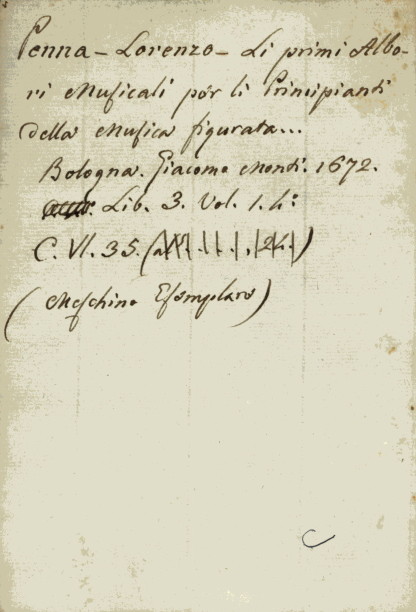 Penna - Lorenzo - Li primi Albo-
ri Musicali pèr li Principianti
della Musica figurata...
Bologna. Giacomo Monti. 1672.
Lib. 3. Vol. 1. 4:
C. VI. 35.
(Meschino Esemplare)